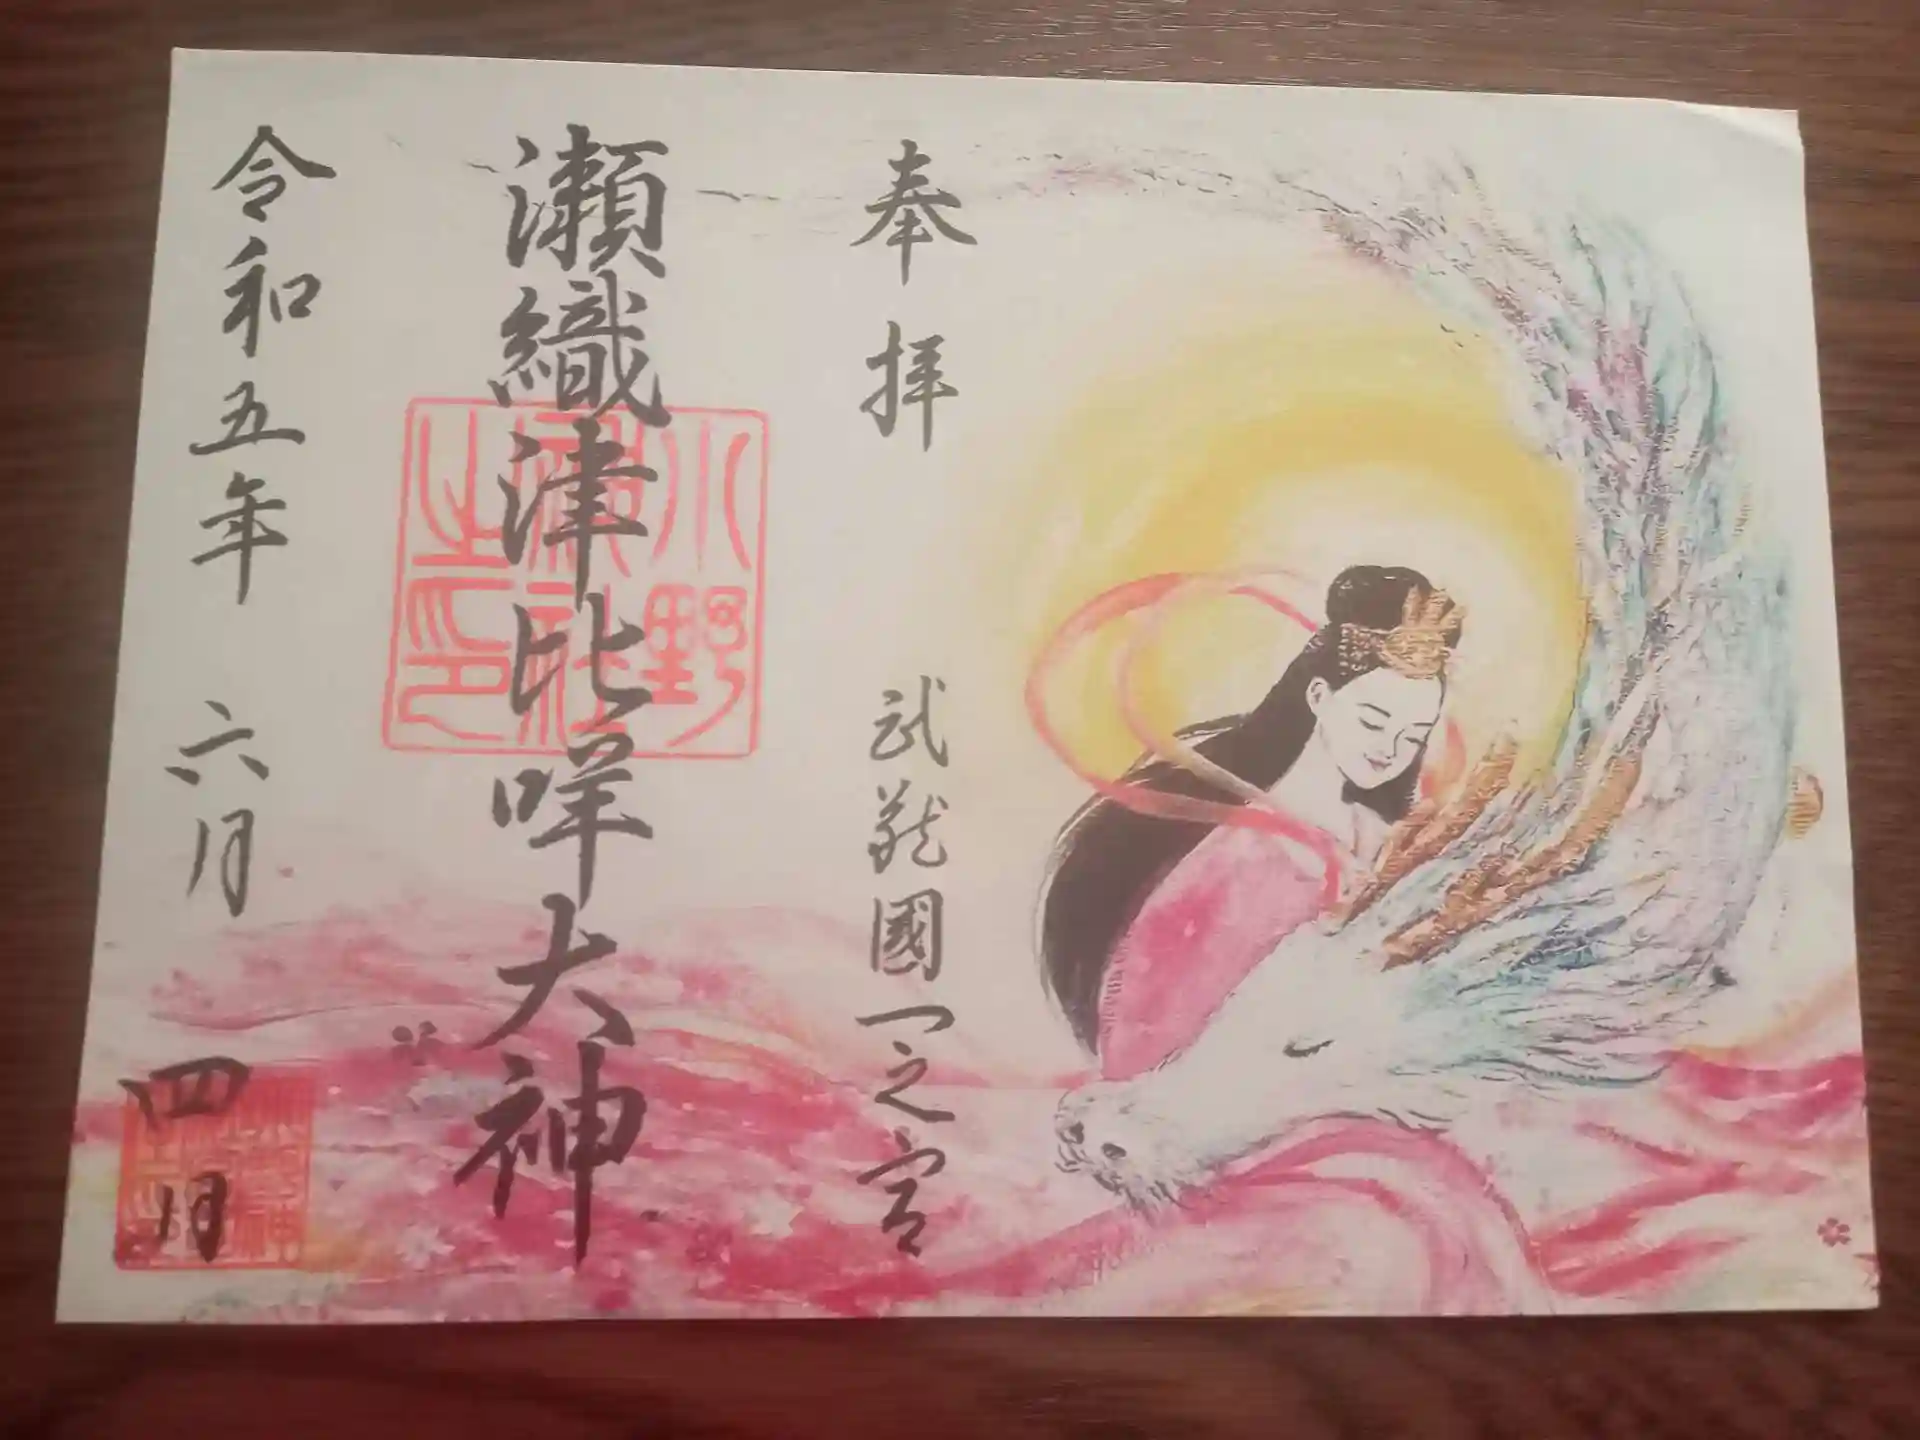 奉拝
武蔵國一之宮
瀬織津比咩大神
小野神社之印
令和五年 六月 四日